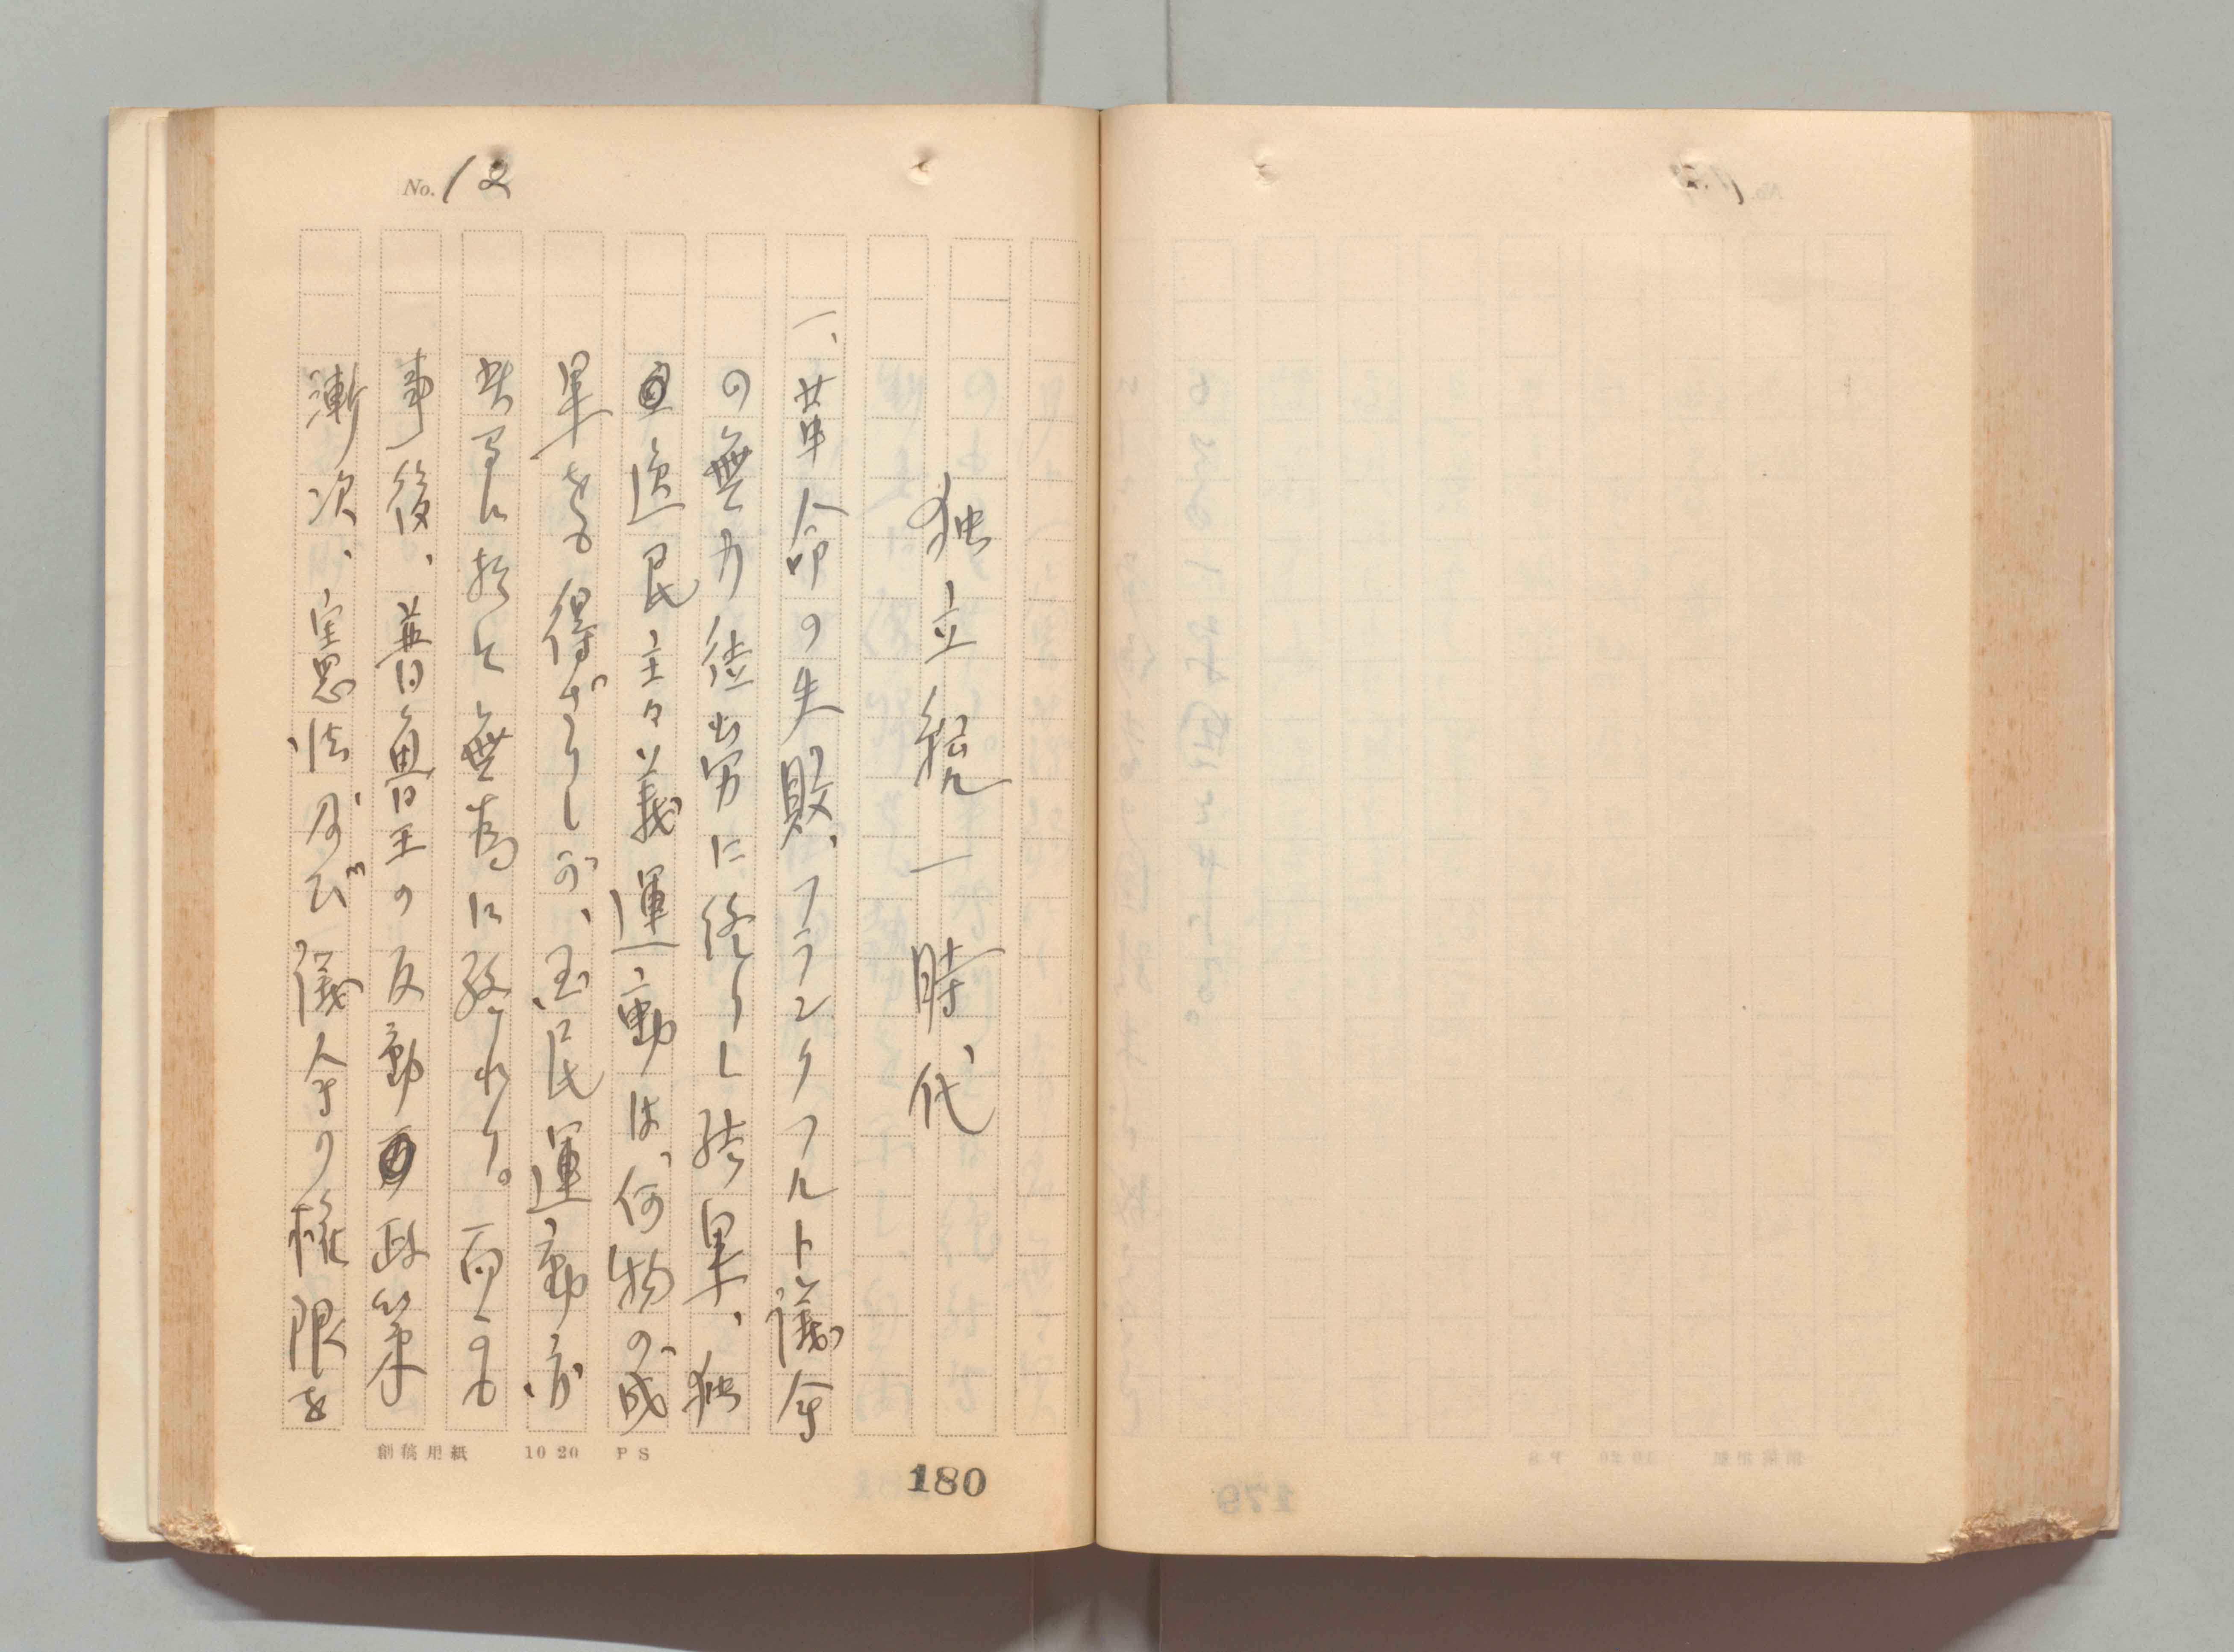 No. 12
独立統一時代
一、革命の失敗、フランクフルト議会
の無力徒労に終りし結果、独
逸民主々義運動は、何物の成
果をも得ざりしが、国民運動亦
共に於て無為に終れり。而も
事後、普魯王の反動政策
漸次、憲法及び議会の権限を
創稿用紙 10 20 PS
180